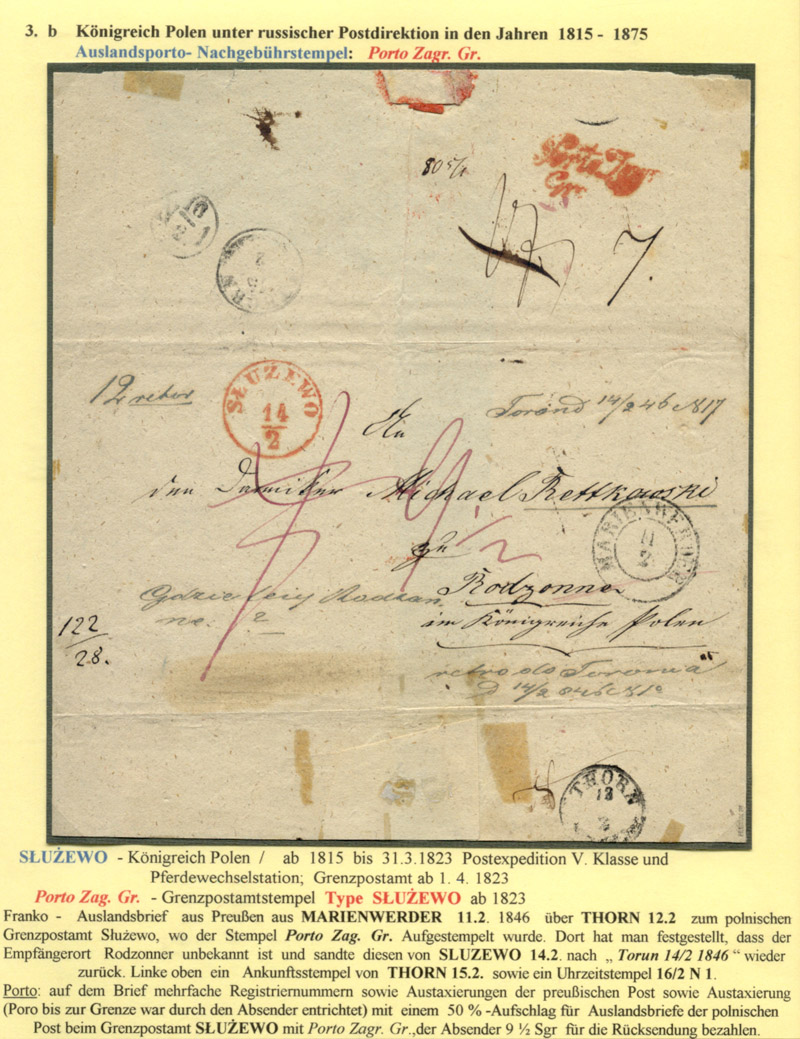 3. b Königreich Polen unter russischer Postdirektion in den Jahren 1815 - 1875
Auslandsporto- Nachgebührstempel: Porto Zagr. Gr.
80 5/4
Porto Zagr.
Gr.
7.
12 retor
SŁUŻEWO
14
2
An
Torond 14/2 46 N17
den Michael Rettkowski
zu
MARIENWERDER
11
2
Rodzonne
Gdzie leży Rodzon
ne. ?
im Königreiche Polen
122
28.
retro do Toronia
D 14/2 846
THORN
12
2
SŁUŻEWO - Königreich Polen / ab 1815 bis 31.3.1823 Postexpedition V. Klasse und
Pferdewechselstation; Grenzpostamt ab 1. 4. 1823
Porto Zag. Gr. - Grenzpostamtstempel Type SŁUŻEWO ab 1823
Franko - Auslandsbrief aus Preußen aus MARIENWERDER 11.2. 1846 über THORN 12.2 zum polnischen
Grenzpostamt Służewo, wo der Stempel Porto Zag. Gr. Aufgestempelt wurde. Dort hat man festgestellt, dass der
Empfängerort Rodzonner unbekannt ist und sandte diesen von SLUZEWO 14.2. nach „ Torun 14/2 1846 “ wieder
zurück. Linke oben ein Ankunftsstempel von THORN 15.2. sowie ein Uhrzeitstempel 16/2 N 1.
Porto: auf dem Brief mehrfache Registriernummern sowie Austaxierungen der preußischen Post sowie Austaxierung
(Poro bis zur Grenze war durch den Absender entrichtet) mit einem 50 % -Aufschlag für Auslandsbriefe der polnischen
Post beim Grenzpostamt SŁUŻEWO mit Porto Zagr. Gr.,der Absender 9 ½ Sgr für die Rücksendung bezahlen.